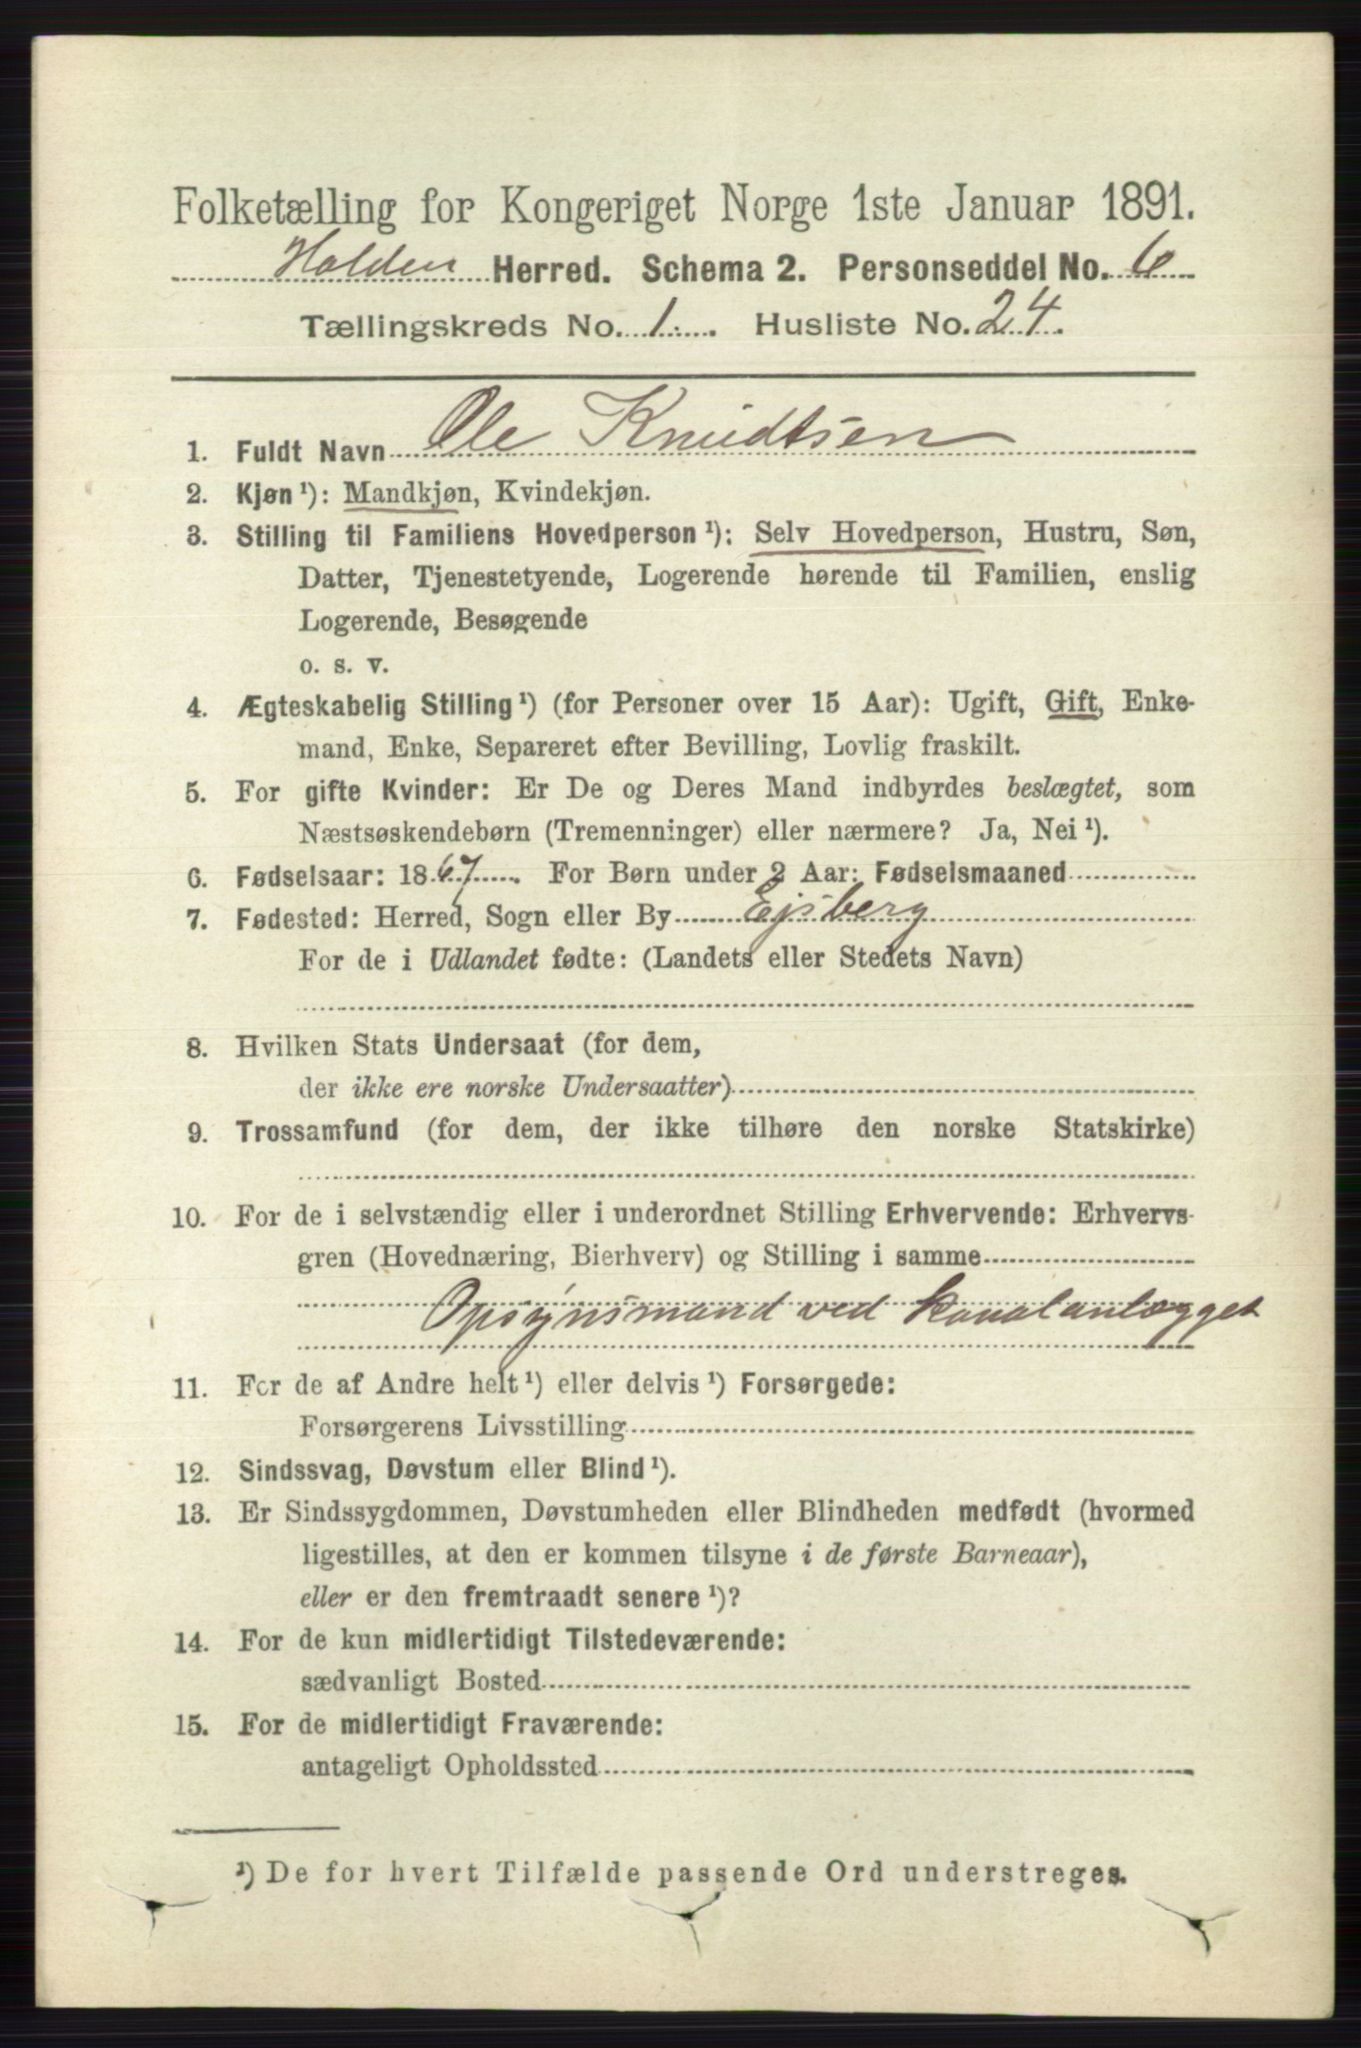 Folketælling for Kongeriget Norge 1ste Januar 1891.
Holden Herred. Schema 2. Personseddel No. 6
Tællingskreds No. 1. Husliste No. 24.
1. Fuldt Navn Ole Knudtsen
2. Kjøn ¹): Mandkjøn, Kvindekjøn.
3. Stilling til Familiens Hovedperson ¹): Selv Hovedperson, Hustru, Søn,
Datter, Tjenestetyende, Logerende hørende til Familien, enslig
Logerende, Besøgende
o. s. v.
4. Ægteskabelig Stilling ¹) (for Personer over 15 Aar): Ugift, Gift, Enke-
mand, Enke, Separeret efter Bevilling, Lovlig fraskilt.
5. For gifte Kvinder: Er De og Deres Mand indbyrdes beslægtet, som
Næstsøskendebørn (Tremenninger) eller nærmere? Ja, Nei ¹).
6. Fødselsaar: 1867. For Børn under 2 Aar: Fødselsmaaned
7. Fødested: Herred, Sogn eller By Ejsberg
For de i Udlandet fødte: (Landets eller Stedets Navn)
8. Hvilken Stats Undersaat (for dem,
der ikke ere norske Undersaatter)
9. Trossamfund (for dem, der ikke tilhøre den norske Statskirke)
10. For de i selvstændig eller i underordnet Stilling Erhvervende: Erhvervs-
gren (Hovednæring, Bierhverv) og Stilling i samme
Opsynsmand ved Kanalanlægget
11. For de af Andre helt ¹) eller delvis ¹) Forsørgede:
Forsørgerens Livsstilling
12. Sindssvag, Døvstum eller Blind ¹).
13. Er Sindssygdommen, Døvstumheden eller Blindheden medfødt (hvormed
ligestilles, at den er kommen tilsyne i de første Barneaar),
eller er den fremtraadt senere ¹)?
14. For de kun midlertidigt Tilstedeværende:
sædvanligt Bosted
15. For de midlertidigt Fraværende:
antageligt Opholdssted
¹) De for hvert Tilfælde passende Ord understreges.